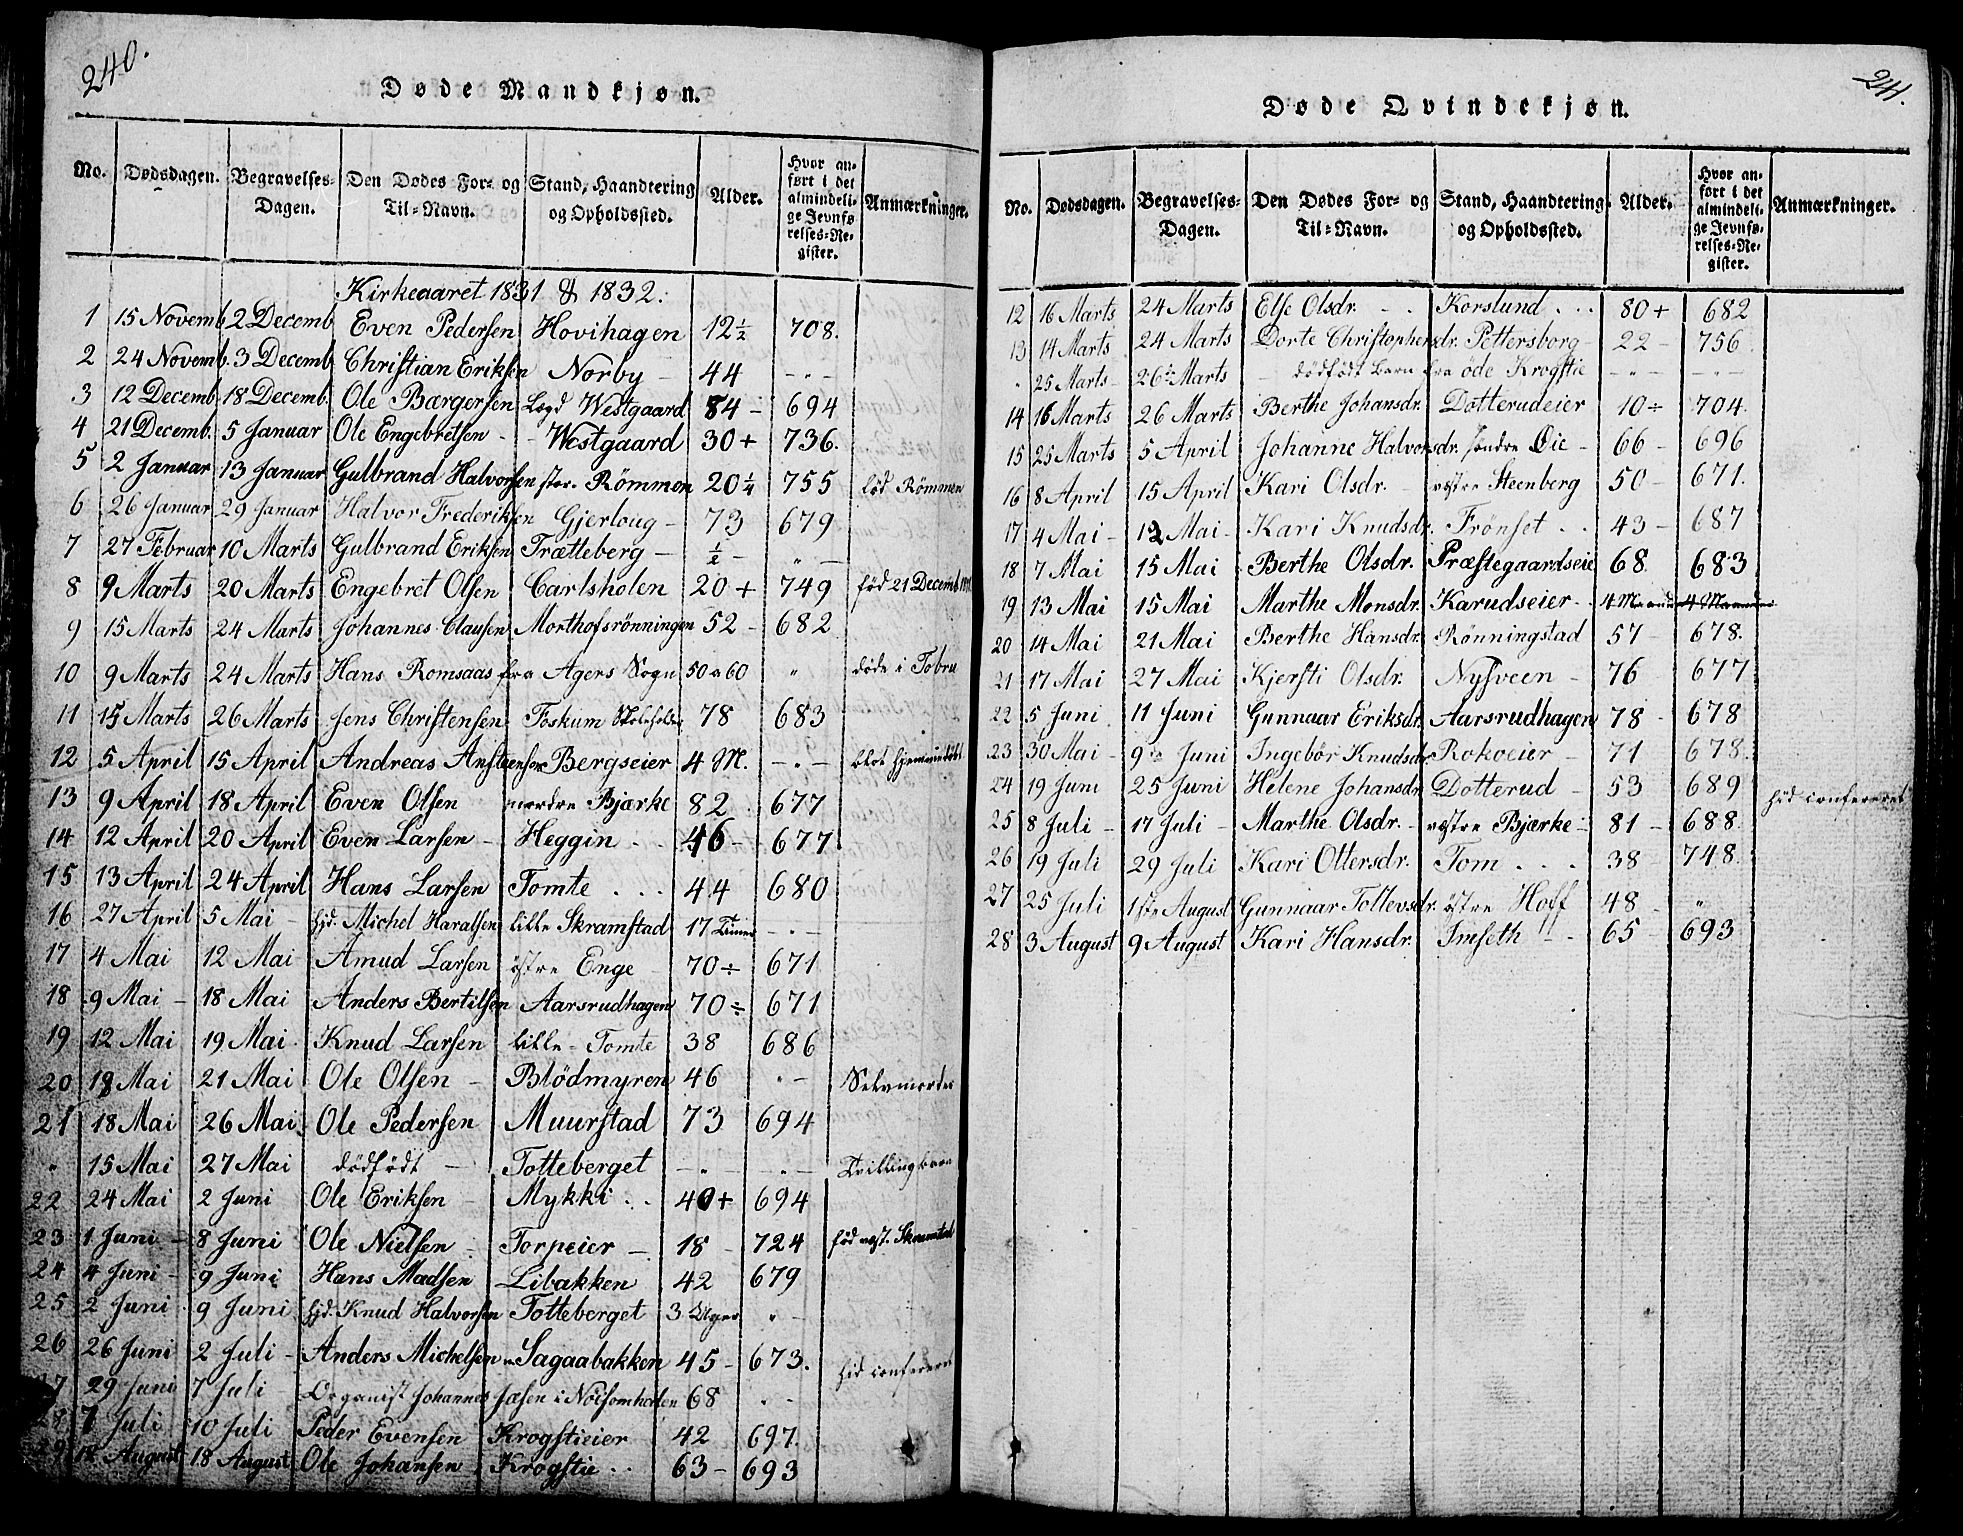 240.
Døde Mandkjøn.
No. Dødsdagen. Begravelses-Dagen. Den Dødes For- og Til-Navn. Stand, Haandtering og Opholdssted. Alder. Hvor anført i det almindelige Jevnførelses-Register. Anmærkninger.
Kirkeaaret 1831 & 1832.
1 15 Novemb. 2 Decemb Even Pedersen Hovihagen 12½ 708.
2 24 Novemb. 3 Decemb Christian Eriksen Norby – 44 – " –
3 12 Decemb. 18 Decemb. Ole Bærgersen Legd Westgaard 84 – 694
4 21 Decemb. 5 Januar Ole Engebretsen - - Westgaard 30 + 736.
5 2 Januar 13 Januar Gulbrand Halvorsen stor. Römmen 20¼ 755 föd Römmen
6 26 Januar 29 Januar Halvor Frederiksen Gjerloug – 73 679
7 27 Februar 10 Marts Gulbrand Eriksen Trætteberg – ½ – " –
8 9 Marts 20 Marts Engebret Olsen Carlsholen 20 + 749 föd 21 Decemb
9 15 Marts 24 Marts Johannes Clausen Morthofsrönningen 52 – 682
10 9 Marts 24 Marts Hans Romsaas fra Agers Sogn 50 a 60 " döde i Tobru
11 15 Marts 26 Marts Jens Christensen Foskum Skoleholder 78 683
12 5 April 15 April Andreas Anstensen Bergseier 4 M. – " – blot hjemmedöbt
13 9 April 18 April Even Olsen nordre Bjærke 82 677
14 12 April 20 April Even Larsen – Heggin . . 46 – 677
15 13 April 24 April Hans Larsen Tomte . . . 44 680
16 27 April 5 Mai – hjd. Michel Haralsen lille Skramstad 17 Timer – " –
17 4 Mai 12 Mai Amud Larsen östre Enge – 70 ÷ 671
18 9 Mai – 18 Mai Anders Bertilsen Aarsrudhagen 70 ÷ 671
19 12 Mai 19 Mai Knud Larsen lille – Tomte 38 686
20 18 Mai 21 Mai Ole Olsen – Blödmyren 46 " – Selvmorder
21 18 Mai 26 Mai Ole Pedersen Muurstad 73 694
" 15 Mai 27 Mai dödfödt – Totteberget – " – " – Tvillingbarn
22 24 Mai 2 Juni Ole Eriksen – Mykki . . 40 + 694
23 1 Juni – 8 Juni Ole Nielsen – Torpeier – 18 – 724 föd vest. Skramstad
24 4 Juni – 9 Juni Hans Madsen Libakken 42 679
25 2 Juni 9 Juni hjd. Knud Halvorsen Totteberget 3 Uger " –
26 26 Juni 2 Juli – Anders Michelsen Sagaabakken 45 – 673. hid confereret
27 29 Juni 7 Juli – Organist Johannes Jæsen i Nöisomheden 68 " –
28 7 Juli 10 Juli Peder Evensen Krogstieier 42 697.
29 12 August 18 August Ole Johansen Krogstie . . 63 – 693
241.
Døde Qvindekjøn.
No. Dødsdagen. Begravelses-Dagen. Den Dødes For- og Til-Navn. Stand, Haandtering og Opholdssted. Alder. Hvor anført i det almindelige Jevnførelses-Register. Anmærkninger.
12 16 Marts 24 Marts Else Olsdr. - . Korslund . . . 80 + 682
13 14 Marts 24 Marts Dorte Christophersdr. Pettersborg – 22 – 756.
" 25 Marts – 26 Marts – dödfödt Barn fra öde Krogstie – " – – " –
14 16 Marts 26 Marts Berthe Johansdr. Dotterudeier 10 ÷ 704.
15 25 Marts 5 April Johanne Halvorsdr. söndre Öie – 66 – 696
16 8 April 15 April Kari Olsdr. – vestre Steenberg 50 – 671.
17 4 Mai – 12 Mai – Kari Knudsdr. Frönset . . 43 – 687
18 7 Mai 15 Mai Berthe Olsdr. Præstegaardseie 68. 683
19 13 Mai 15 Mai Marthe Monsdr. Karudseier – 4 Maaneder 4 Maaneder
20 14 Mai 21 Mai Berthe Hansdr. Rönningstad 57 – 678.
21 17 Mai 27 Mai Kjersti Olsdr. Nysveen – 76 – 677
22 5 Juni 11 Juni Gunnaar Eriksdr. Aarsrudhagen 78 – 678
23 30 Mai – 9 Juni Ingebör Knudsdr. Rokoeier – 71 678.
24 19 Juni 25 Juni Helene Johansdr. Dotterud – 53 689
25 8 Juli – 17 Juli – Marthe Olsdr. – vestre Bjærke – 81 – 688. hid confereret
26 19 Juli 29 Juli Kari Ottersdr. Tom . . . 38 – 748.
27 25 Juli 1ste August Gunnaar Tollevsdr. östre Hoff 48 – "
28 3 August 9 August Kari Hansdr. Imseth – - 65 – 693